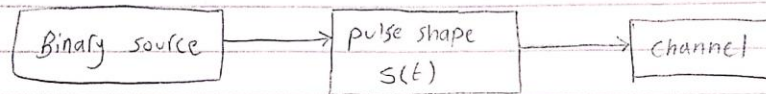 Binary source
pulse shape
S(t)
channel